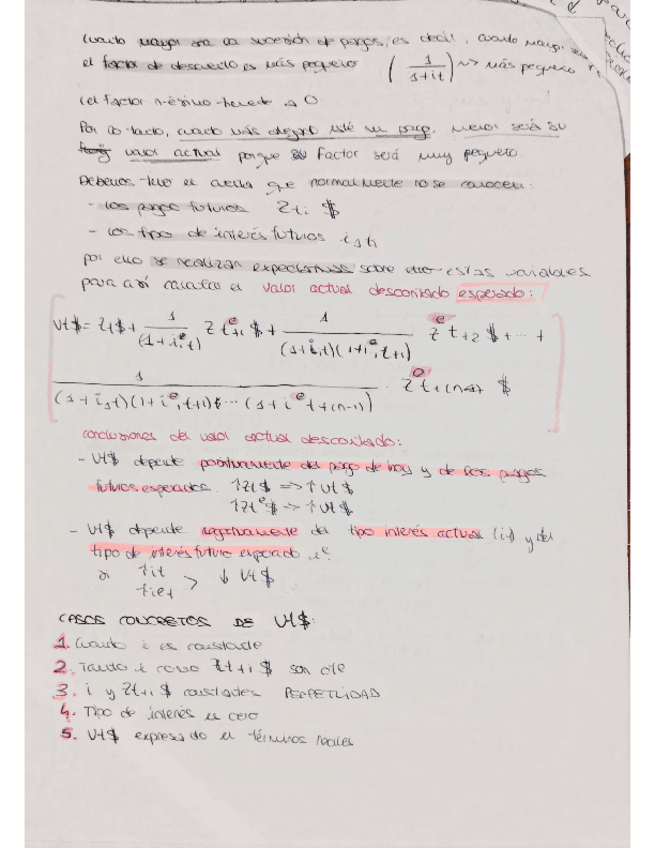 Cuanto mayor sea la sucesión de pagos, es decir, cuanto mayor sea
el factor de descuento es más pequeño ( 1/(1+it) ) ~> más pequeño
(el factor n-ésimo tiende a 0
Por lo tanto, cuanto más alejado esté un pago, menor será su
valor actual porque su factor será muy pequeño.
Debemos tener en cuenta que normalmente no se conocen:
- los pagos futuros Zti $
- los tipo de interés futuros i1ti
por ello se realizan expectativas sobre estas variables
para así calcular el valor actual descontado esperado:
Vt$ = Zt$ + 1/(1+i1t) Z^e t+1 $ + 1/((1+i1t)(1+i^e1t+1)) Z^e t+2 $ + ... +
1/((1+i1t)(1+i^e1t+1)...(1+i^e t+(n-1))) · Z^e t+(n-1) $
conclusiones del valor actual descontado:
- Vt$ depende positivamente del pago de hoy y de los pagos
futuros esperados. ↑Zt$ => ↑Vt$
↑Zt^e$ => ↑Vt$
- Vt$ depende negativamente del tipo interés actual (it) y del
tipo de interés futuro esperado i^e.
si ↑it
↑iet > ↓ Vt$
CASOS CONCRETOS DE Vt$:
1. Cuando i es constante
2. Tanto i como Zt+1 $ son cte
3. i y Zt+1 $ constantes PERPETUIDAD
4. Tipo de interés es cero
5. Vt$ expresado en términos reales